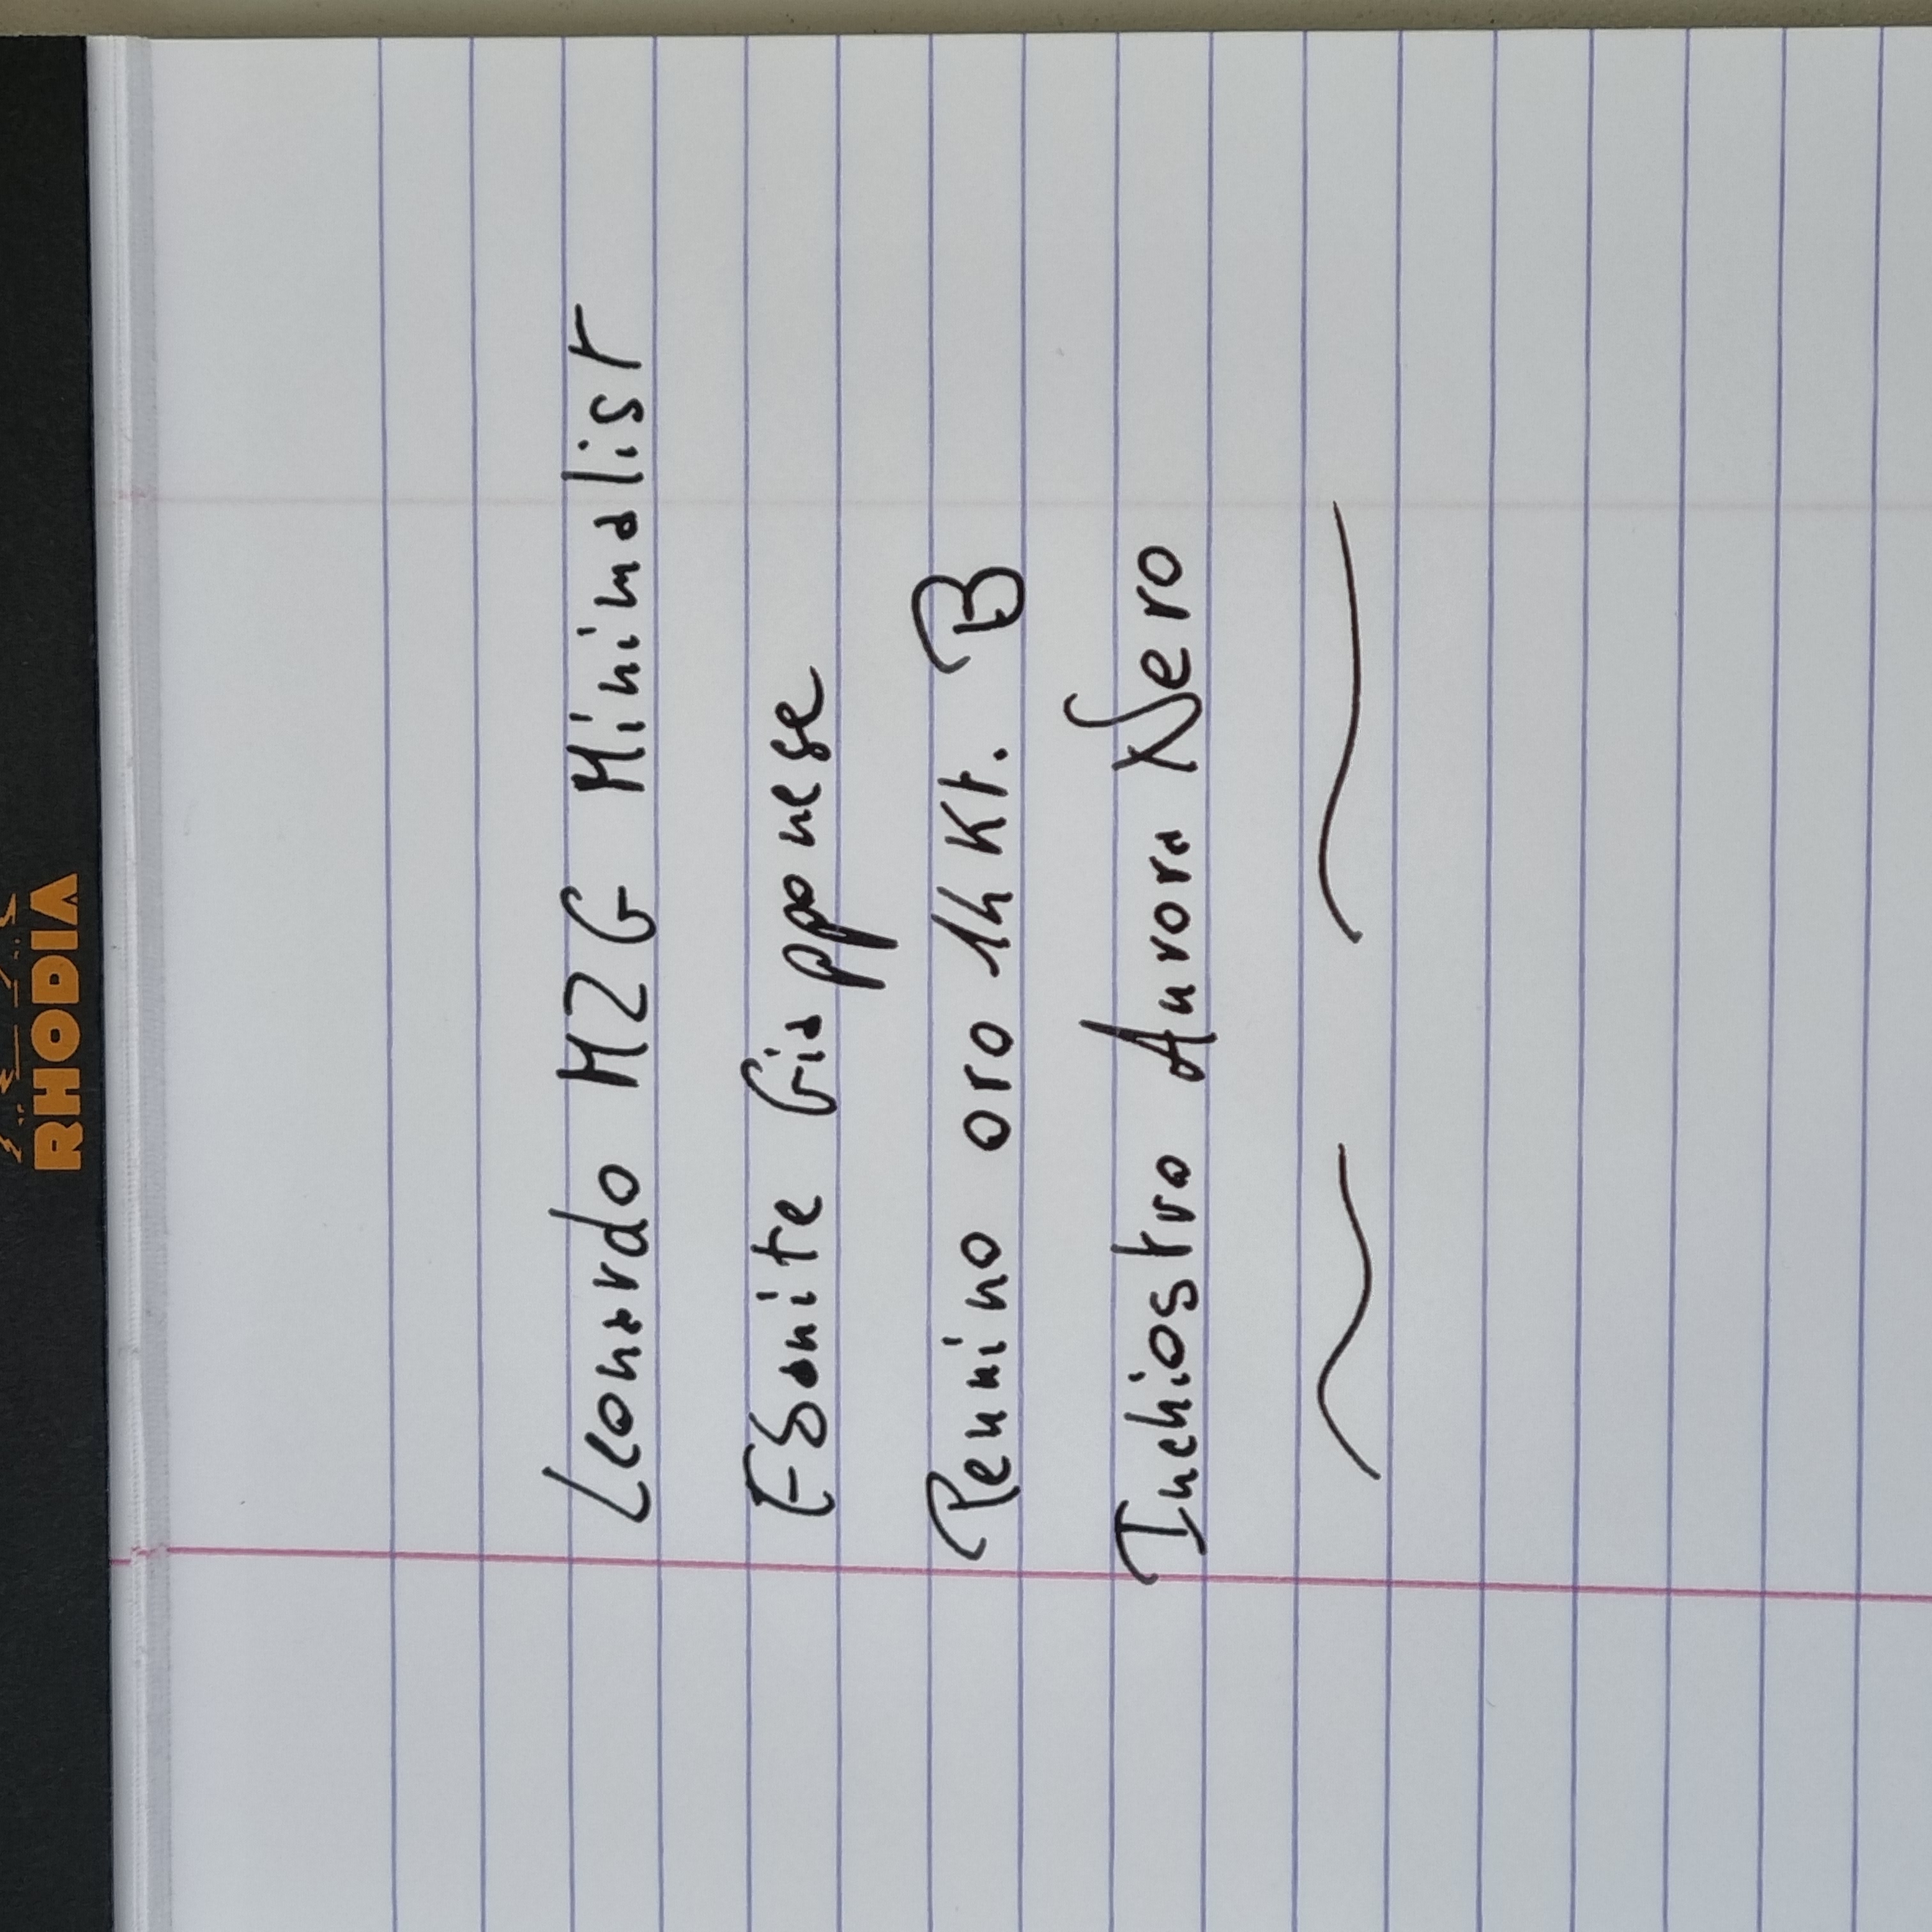 RHODIA
Leonardo MZG Minimalist
Ebanite Giapponese
Pennino oro 14 Kt. B
Inchiostro Aurora Nero